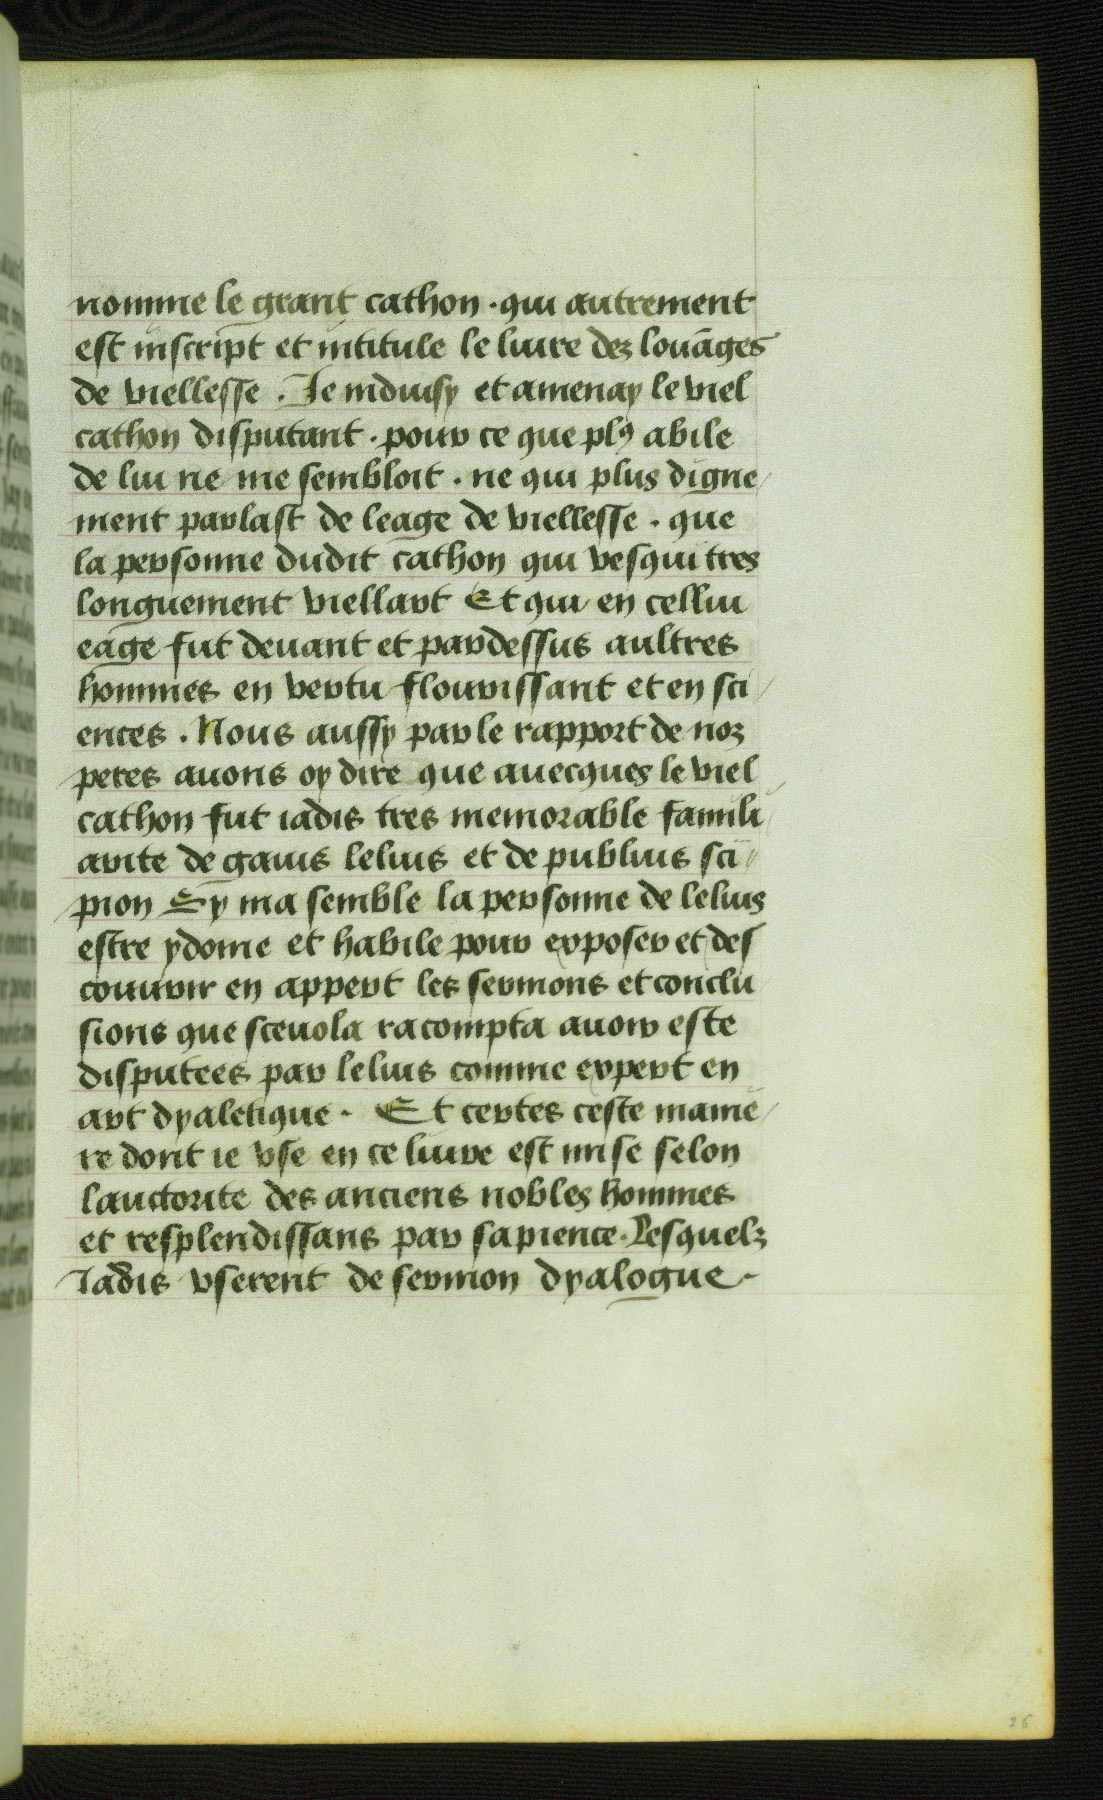 nomme le grant cathon · qui autrement
est inscript et intitule le liure dez louāges
de viellesse . Je induisy et amenay le viel
cathon disputant · pour ce que plꝰ abile
de lui ne me sembloit · ne qui plus digne
ment parlast de leage de viellesse · que
la personne dudit cathon qui vesqui tres
longuement viellart Et qui en cellui
eage fut deuant et pardessus aultres
hommes en vertu flourissant et en sci
ences . Nous aussy par le rapport de noz
peres auons oy dire que auecques le viel
cathon fut iadis tres memorable famili
arite de gaius lelius et de publius sci
pion Ey ma semble la personne de lelius
estre ydoine et habile pour exposer et des
couurir en appert les sermons et conclu
sions que sceuola racompta auoir este
disputees par lelius comme expert en
art dyaletique · Et certes ceste manie
re dont ie vse en ce liure est mise selon
lauctorite des anciens nobles hommes
et resplendissans par sapience · Lesquelz
Iadis vserent de sermon dyalogue ·
26